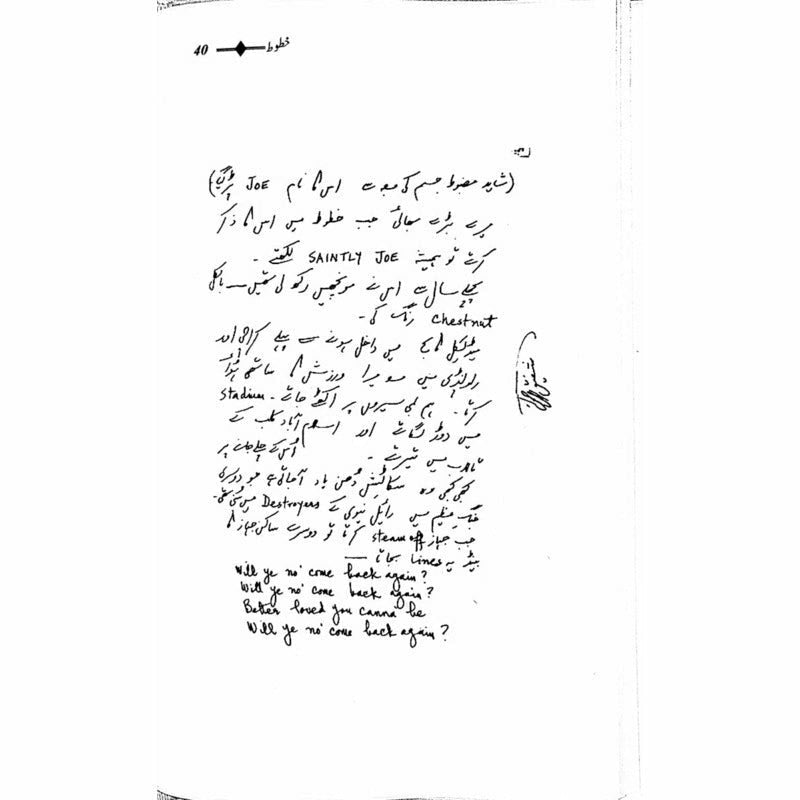 40 خطوط
(شاید مضبوط جسم کی وجہ سے اس کا نام JOE پڑ گیا)
میرے بڑے بھائی جب خطوط میں اس کا ذکر
کرتے تو ہمیشہ SAINTLY JOE لکھتے۔
پچھلے سال سے اس نے مونچھیں رکھ لی تھیں — بالکل
chestnut رنگ کی۔
میڈیکل کالج میں داخل ہونے سے پہلے کراچی اور
راولپنڈی میں وہ میرا ورزش کا ساتھی ہوا
کرتا۔ ہم لمبی سیروں پر اکٹھے جاتے۔ Stadium
میں دوڑ لگاتے اور اسلام آباد کلب کے
تالاب میں تیرتے۔ اُس کے چلے جانے پر
کبھی کبھی وہ سکاٹش دُھن یاد آ جاتی ہے جو دوسری
جنگِ عظیم میں رائل نیوی کے Destroyers میں سُنی تھی۔
جب جہاز steam off کرتا تو دوسرے ساکن جہاز کا
بینڈ یہ Lines بجاتا —
Will ye no' come back again?
Will ye no' come back again?
Better loved you canna' be
Will ye no' come back again?